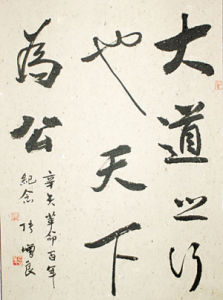 大道之行
也天下
為公
辛亥革命百年
紀念